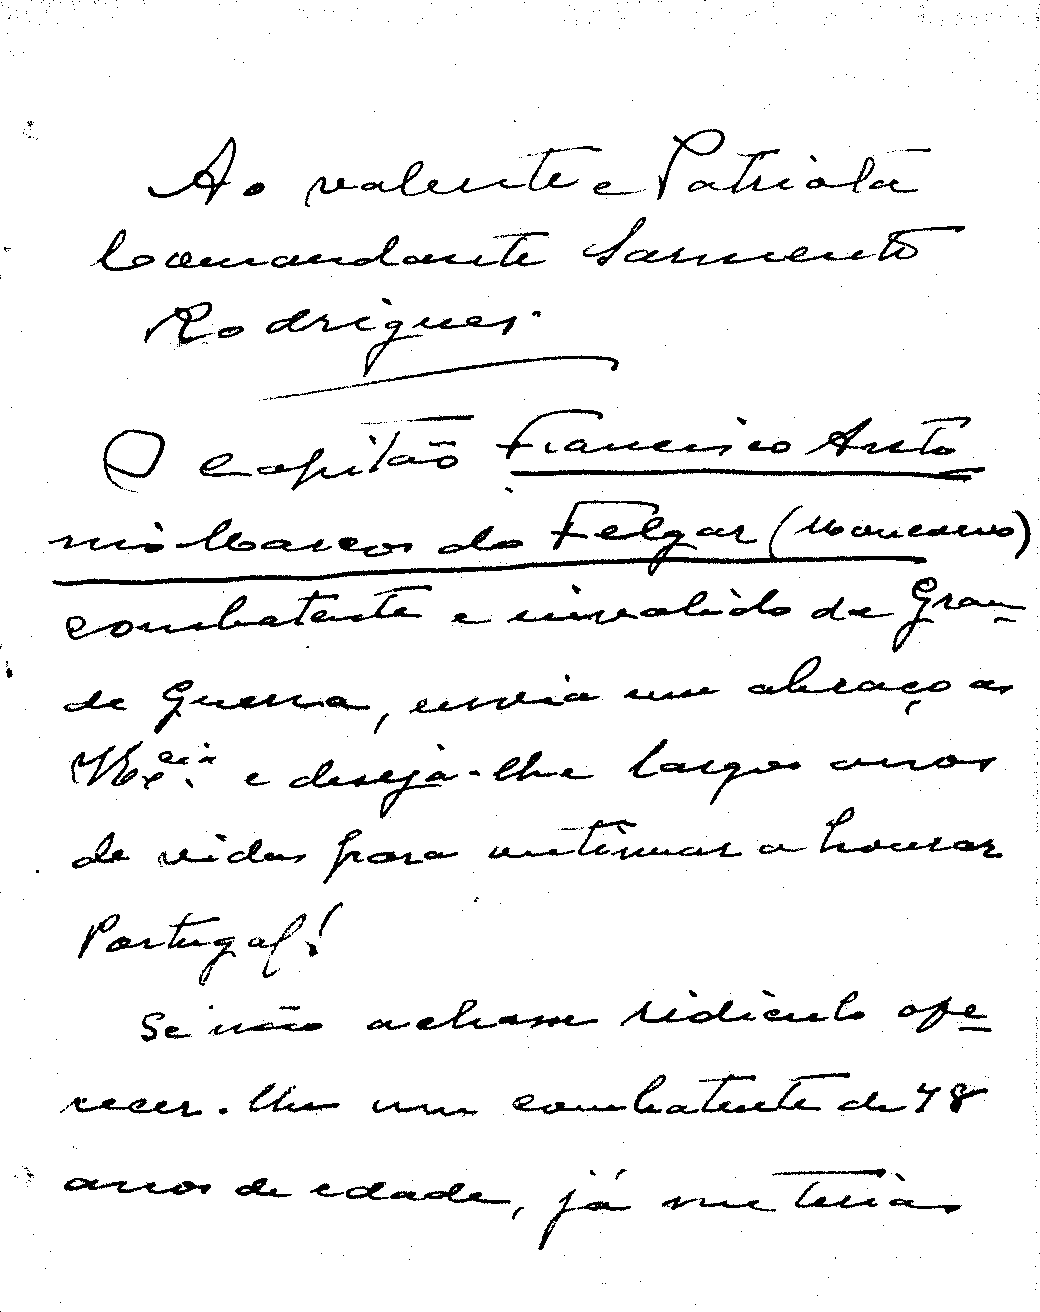 Ao valente e Patriota
Comandante Sarmento
Rodrigues.
O Capitão Francisco Antó
nio Marcos do Felgar (Moncorvo)
combatente e invalido da Gran
de Guerra, envia um abraço a
V. Ex.cia e deseja-lhe largos anos
de vida para continuar a honrar
Portugal!
Se não achasse ridiculo ofe
recer-lhe um combatente de 78
anos de edade, já me teria